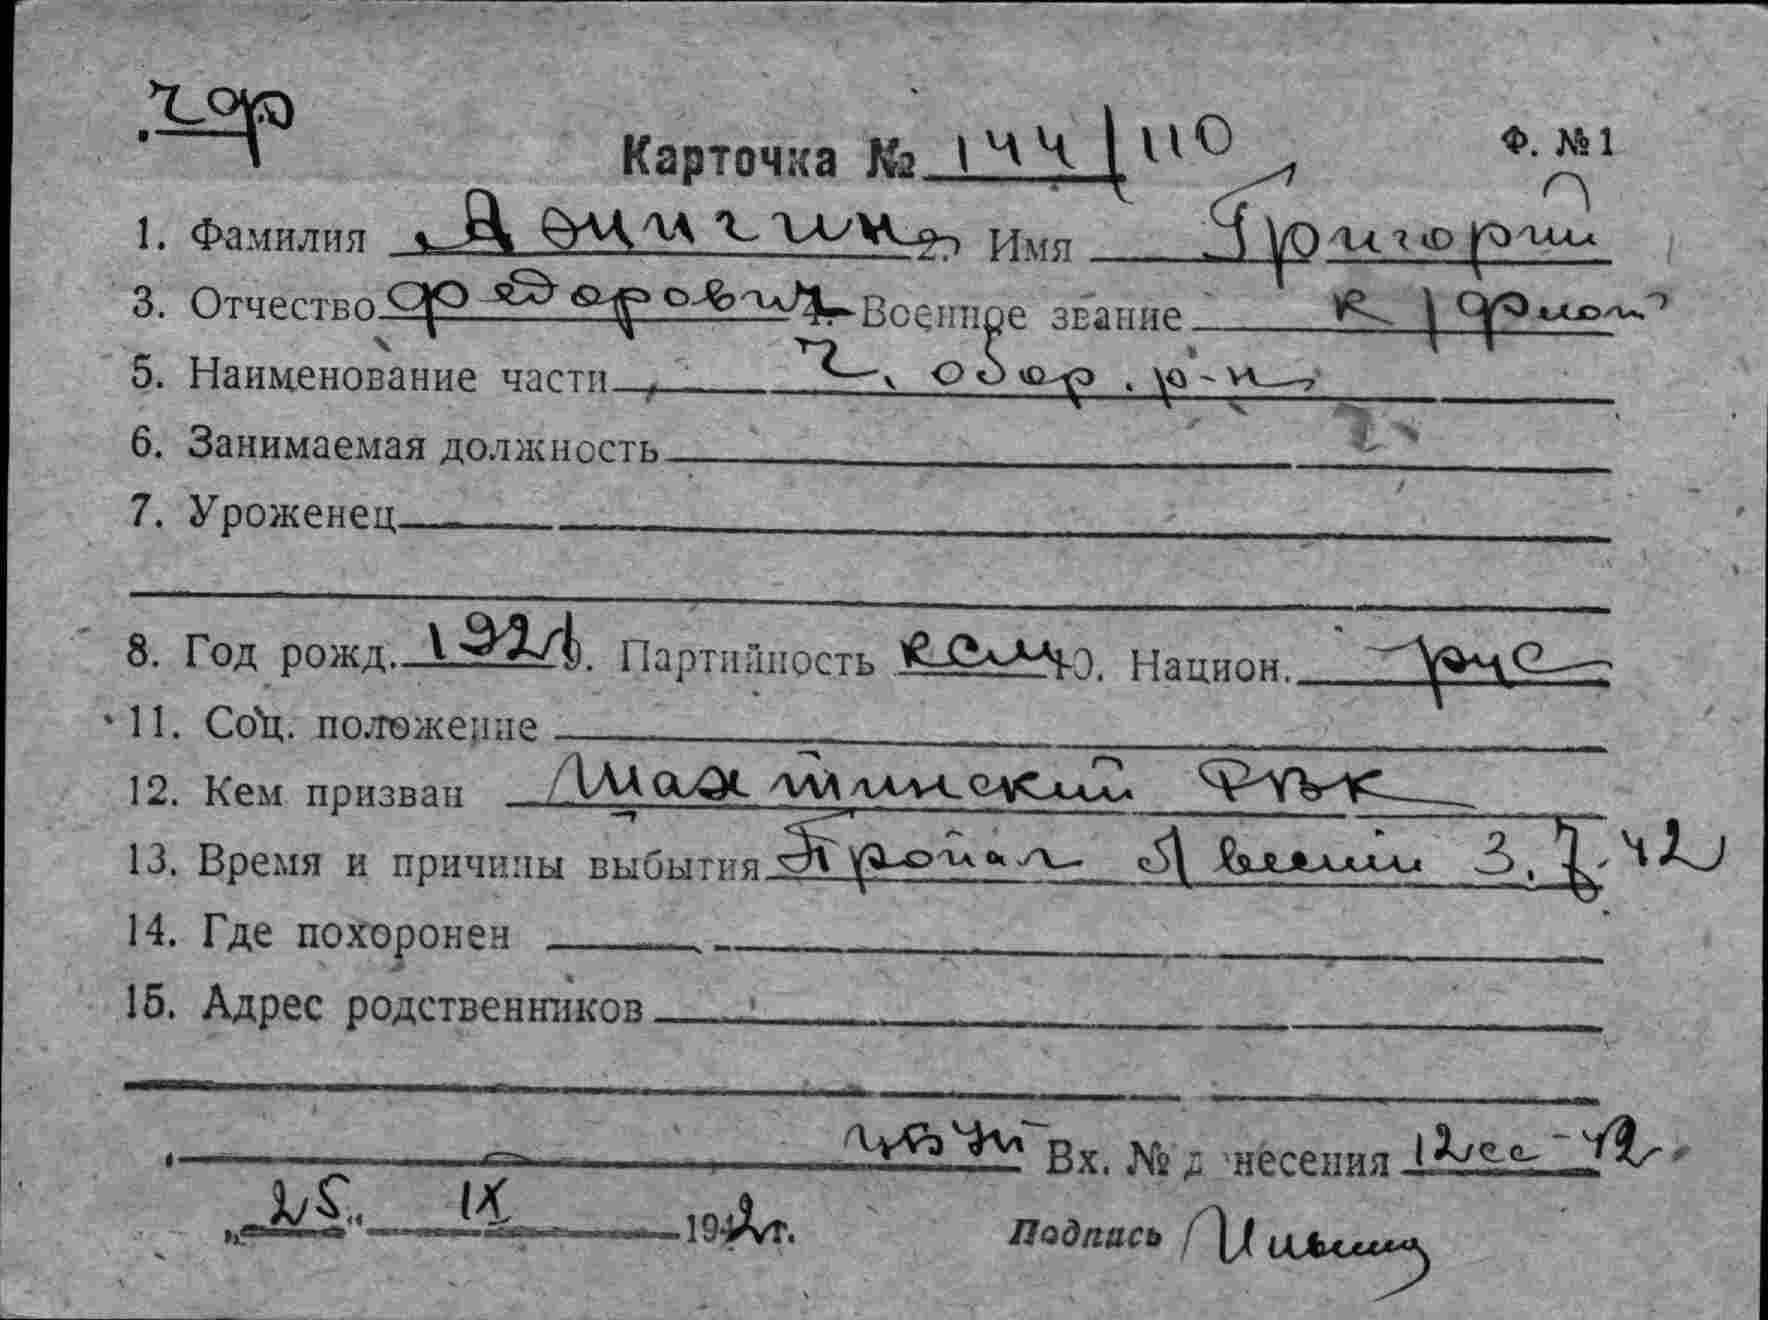 чф
Карточка № 144/110 Ф. №1
1. Фамилия 2. Имя Григорий
3. Отчество Федорович 4. Военное звание к/флот
5. Наименование части Ч. обор. р-н
6. Занимаемая должность
7. Уроженец
8. Год рожд. 1921 9. Партийность ксм 10. Национ. рус
11. Соц. положение
12. Кем призван Шахтинский РВК
13. Время и причины выбытия Пропал б/вести 3.7.42
14. Где похоронен
15. Адрес родственников
Вх. № донесения 12сс-42
„25“ IX 1942г. Подпись